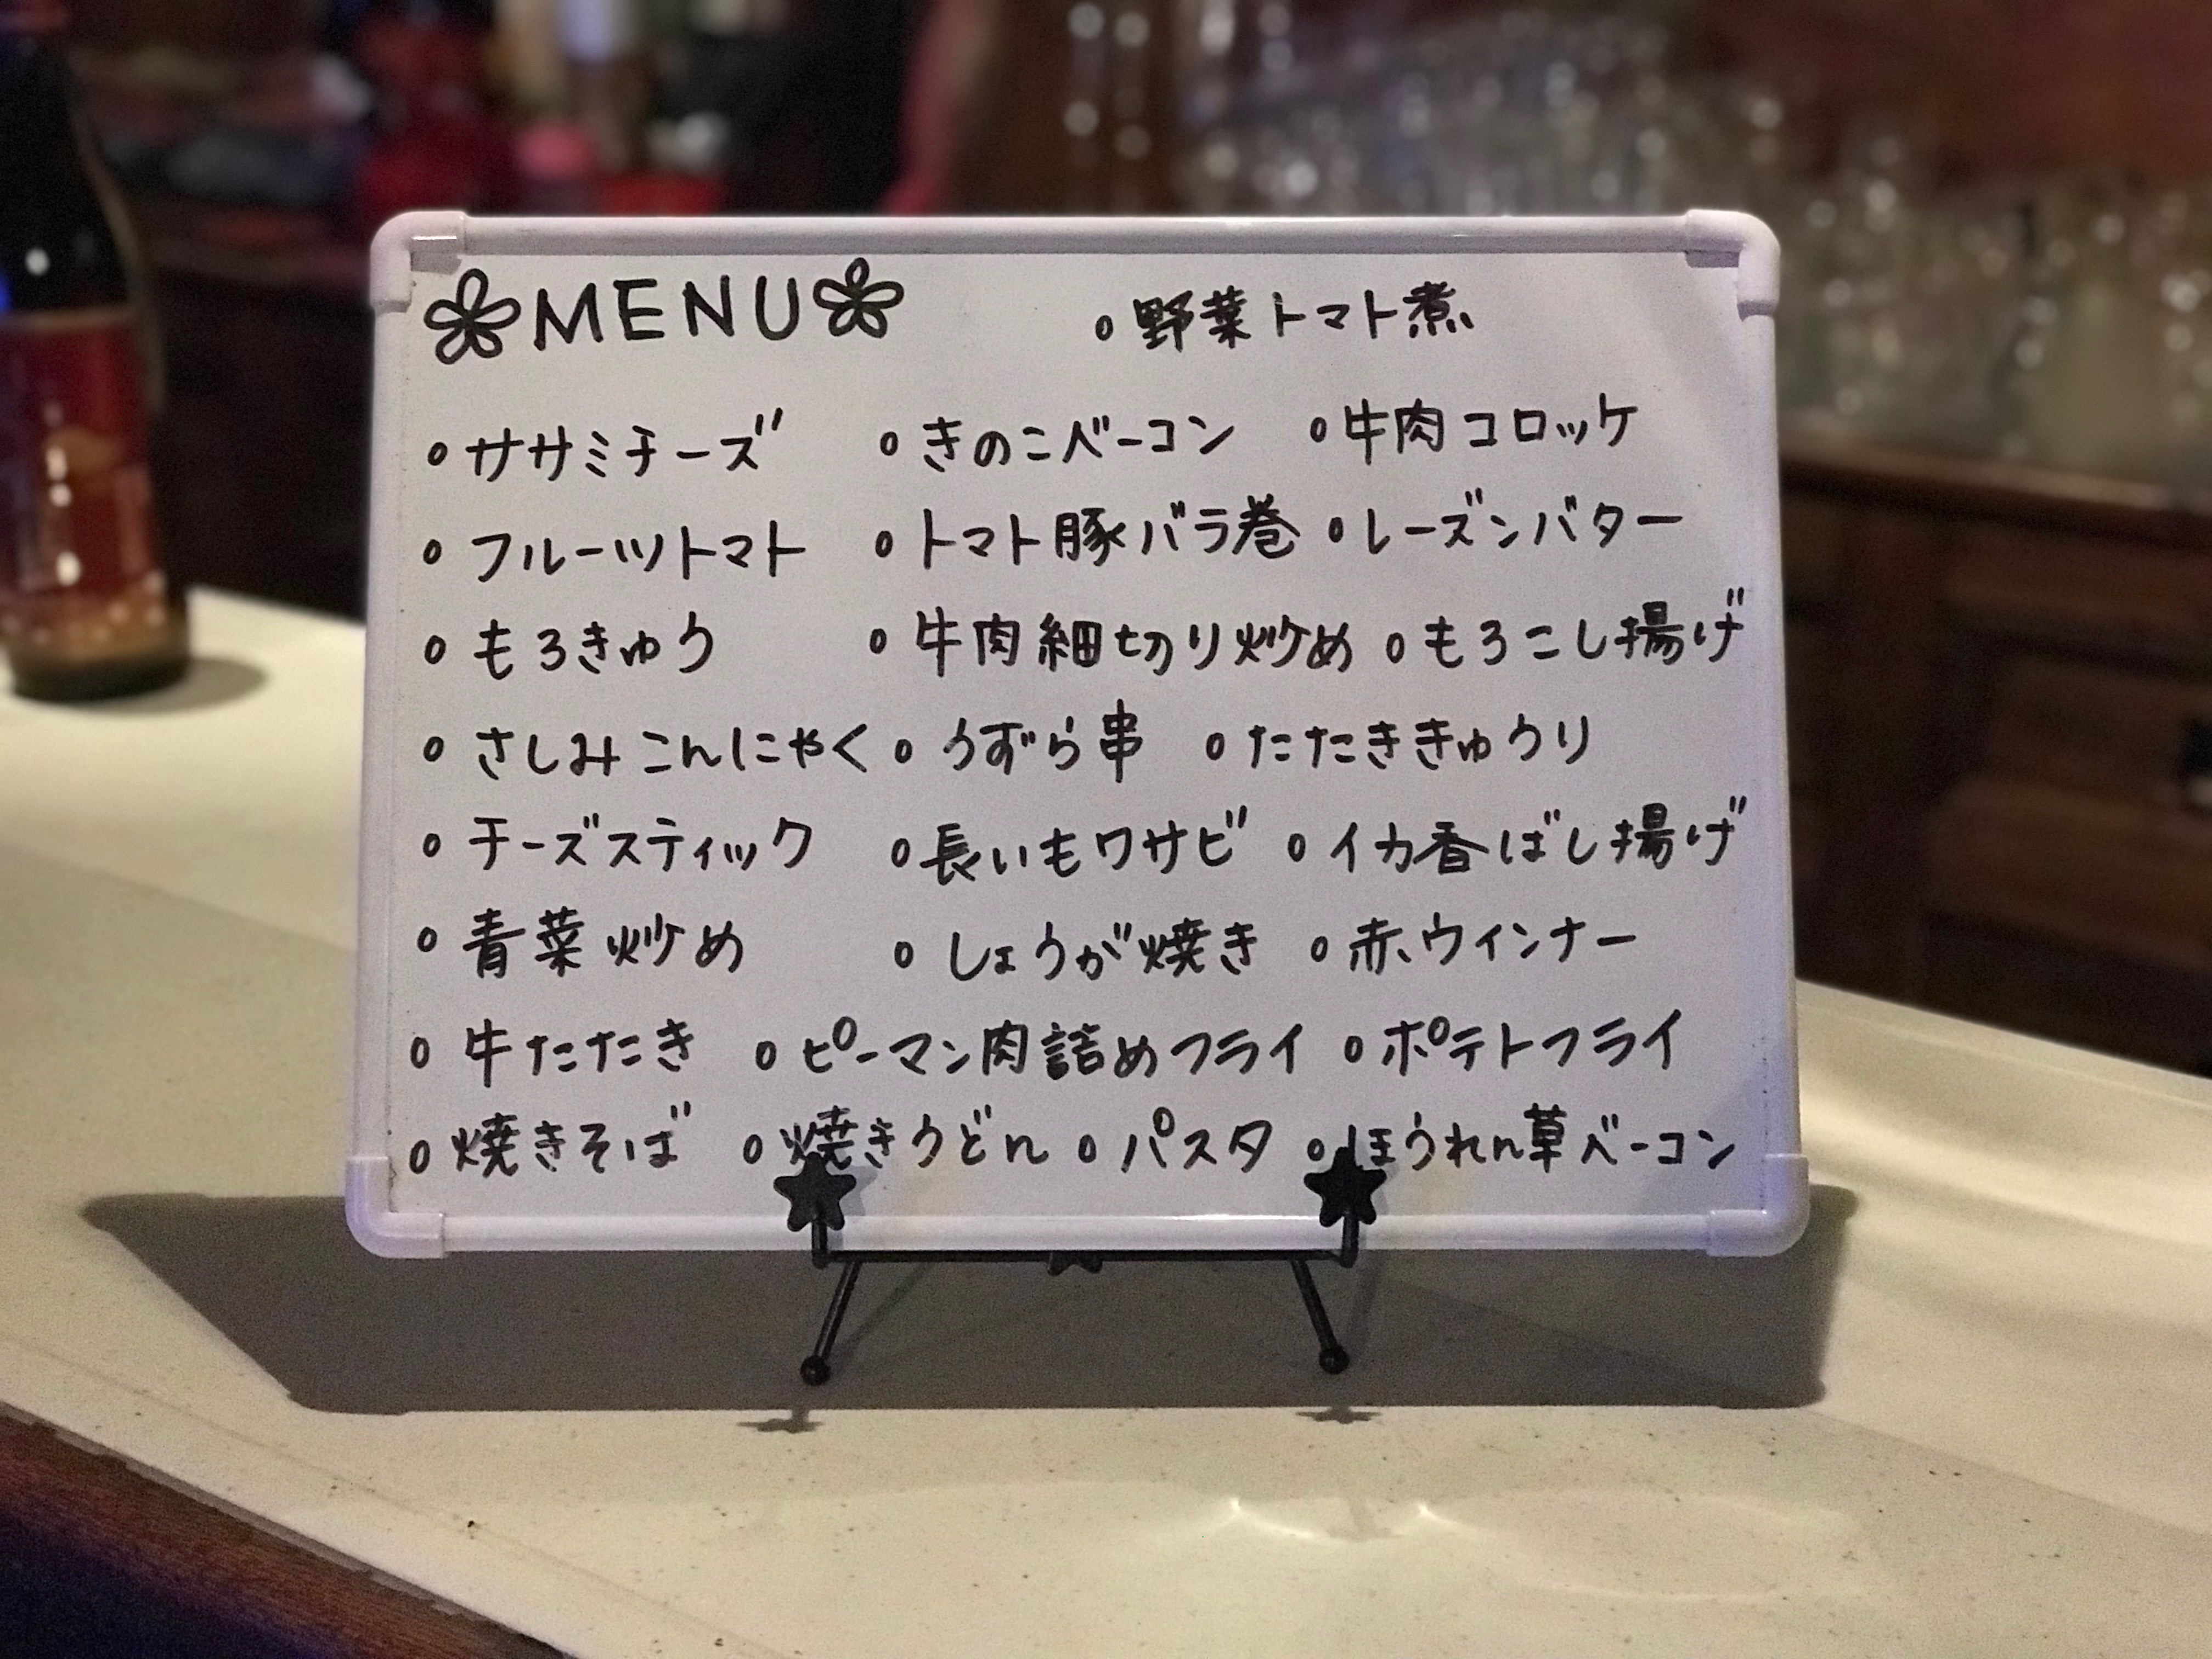 MENU ○野菜トマト煮
○ササミチーズ ○きのこベーコン ○牛肉コロッケ
○フルーツトマト ○トマト豚バラ巻 ○レーズンバター
○もろきゅう ○牛肉細切り炒め ○もろこし揚げ
○さしみこんにゃく ○うずら串 ○たたききゅうり
○チーズスティック ○長いもワサビ ○イカ香ばし揚げ
○青菜炒め ○しょうが焼き ○赤ウィンナー
○牛たたき ○ピーマン肉詰めフライ ○ポテトフライ
○焼きそば ○焼きうどん ○パスタ ○ほうれん草ベーコン